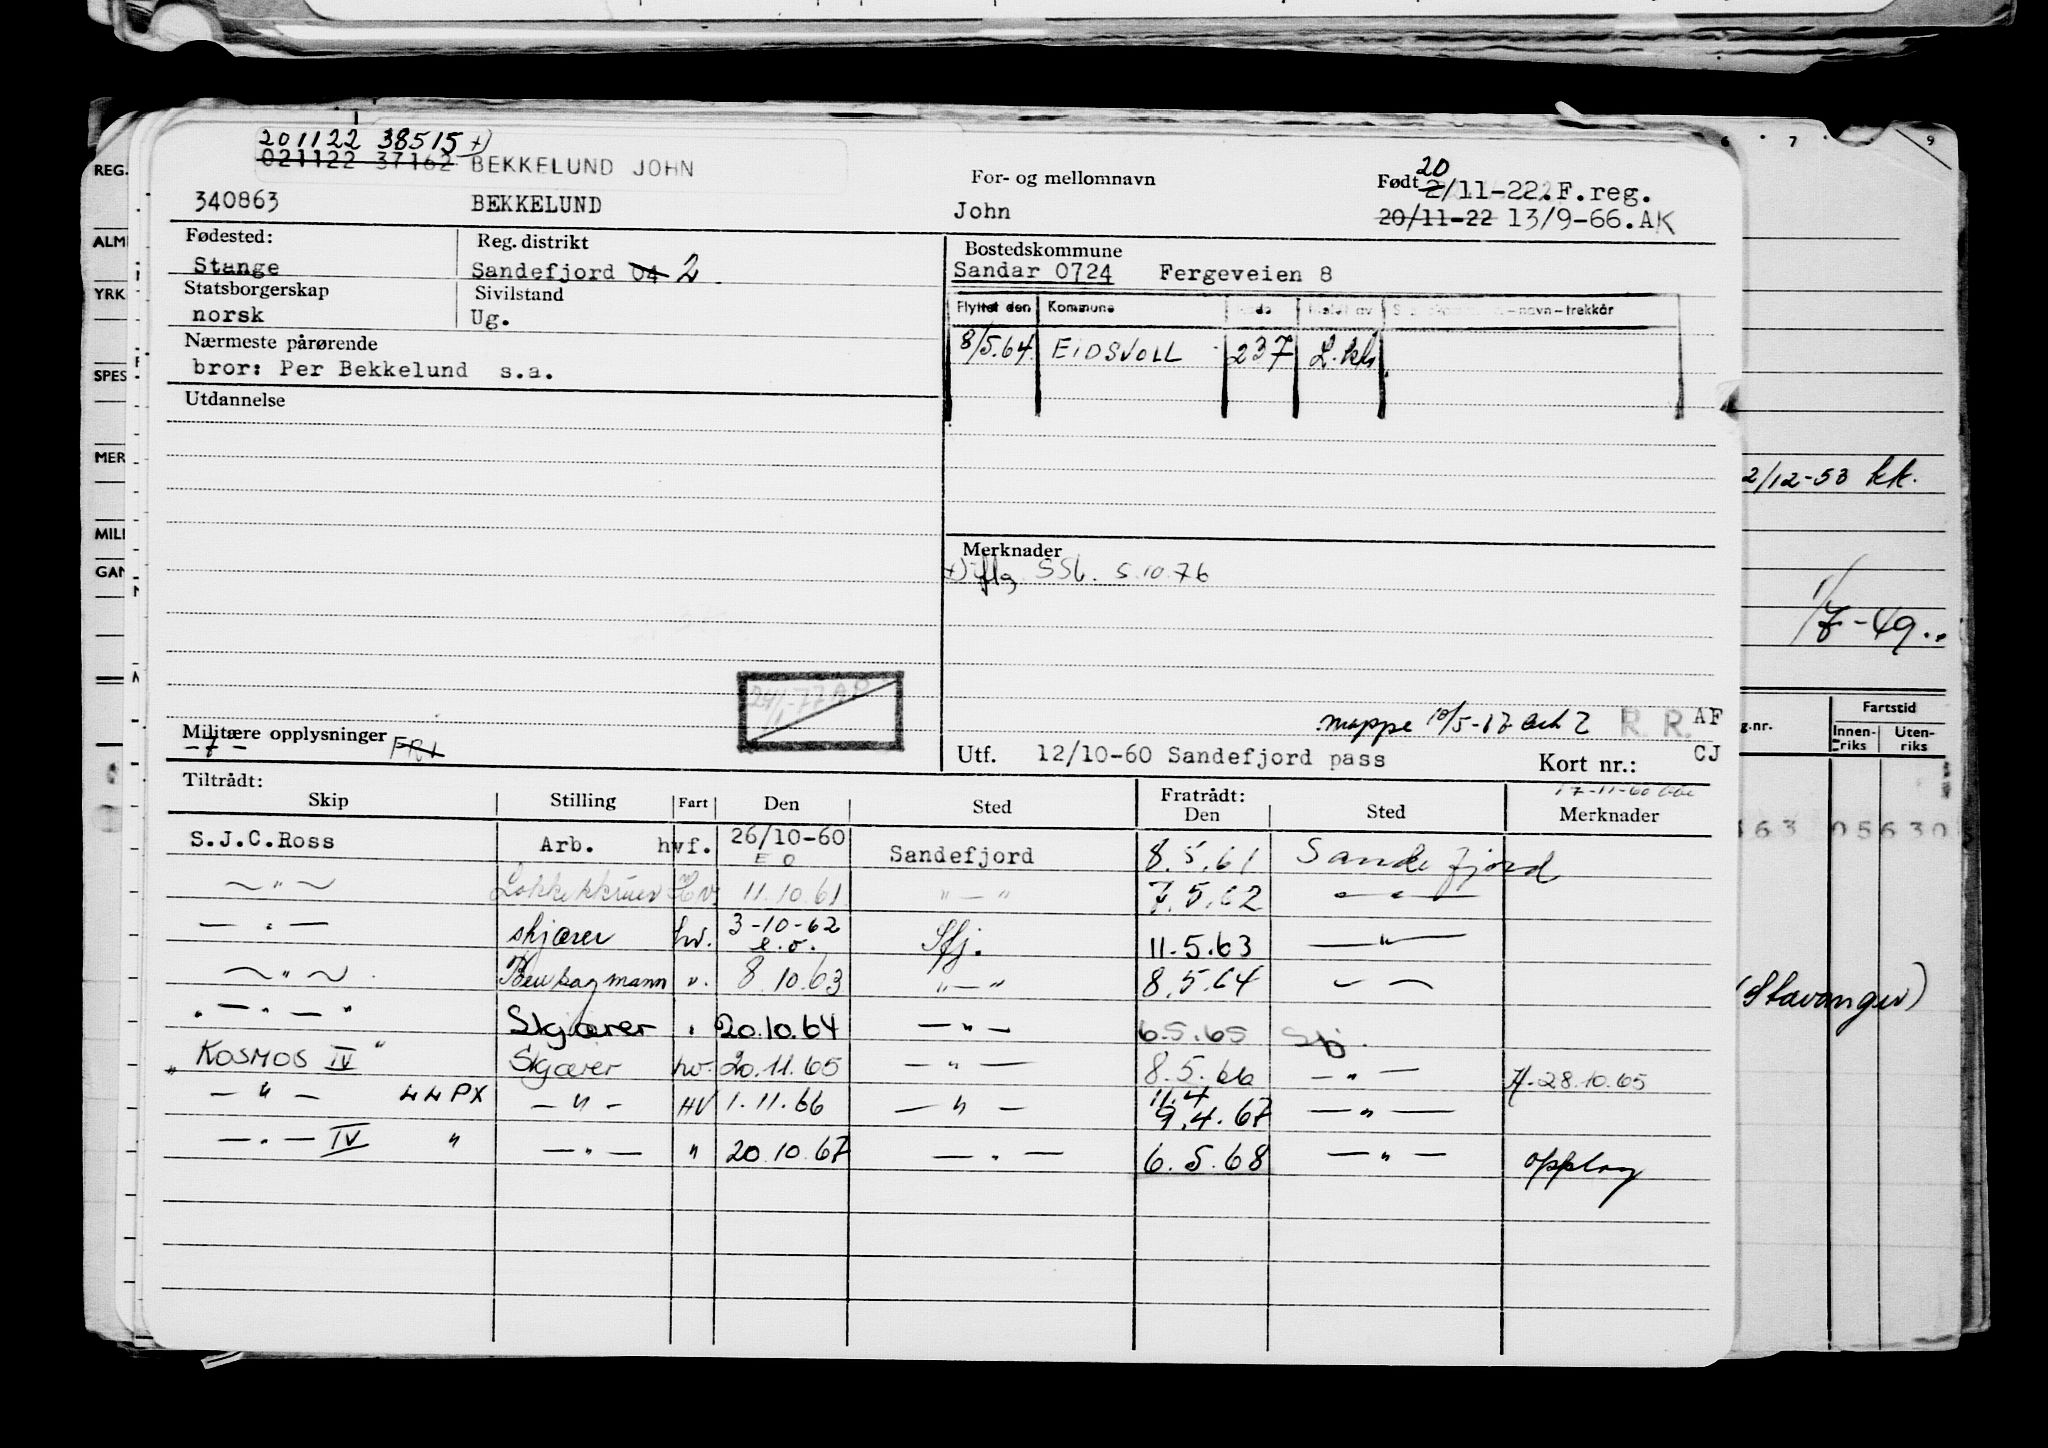 201122 38515 +)
021122 37162 BEKKELUND JOHN
340863 BEKKELUND
For- og mellomnavn
John
Født 20
2/11-22.F.reg.
20/11-22 13/9-66.AK
Fødested:
Stange
Reg. distrikt
Sandefjord 04 2
Bostedskommune
Sandar 0724 Fergeveien 8
Statsborgerskap
norsk
Sivilstand
Ug.
Flyttet den Kommune
8/5.64. EIDSVOLL 237
Nærmeste pårørende
bror: Per Bekkelund s.a.
Utdannelse
Merknader
+) flg. SSb. 5.10.76
Militære opplysninger
mappe
R. R. AF
Utf. 12/10-60 Sandefjord pass Kort nr.: CJ
Tiltrådt:
Skip Stilling Fart Den Sted
Fratrådt:
Den Sted Merknader
S.J.C.Ross Arb. hvf. 26/10-60 Sandefjord 8.5.61 Sandefjord
E O
— " — Hv. 11.10.61 " — " 7.5.62 — " —
— " — skjærer hv. 3-10-62 Sfj. 11.5.63 — " —
e.o.
— " — ". 8.10.63 " — " 8.5.64 — " —
" — " — " Skjærer " 20.10.64 — " — 6.5.65 Sfj.
" KOSMOS IV " Skjærer hv. 20.11.65 — " — 8.5.66 — " — 28.10.65
— " — LLPX — " — HV 1.11.66 — " — 9.4.67 — " —
11.4
— " — IV " — " — " 20.10.67 — " — 6.5.68 — " — opplag
REG.
ALM
YRK
SPES
MER
MILI
GAN
6 7 9
2/12-53 kk.
1/7-49..
g.nr.
Fartstid
Innen-
riks
Uten-
riks
163 05630
(Stavanger)